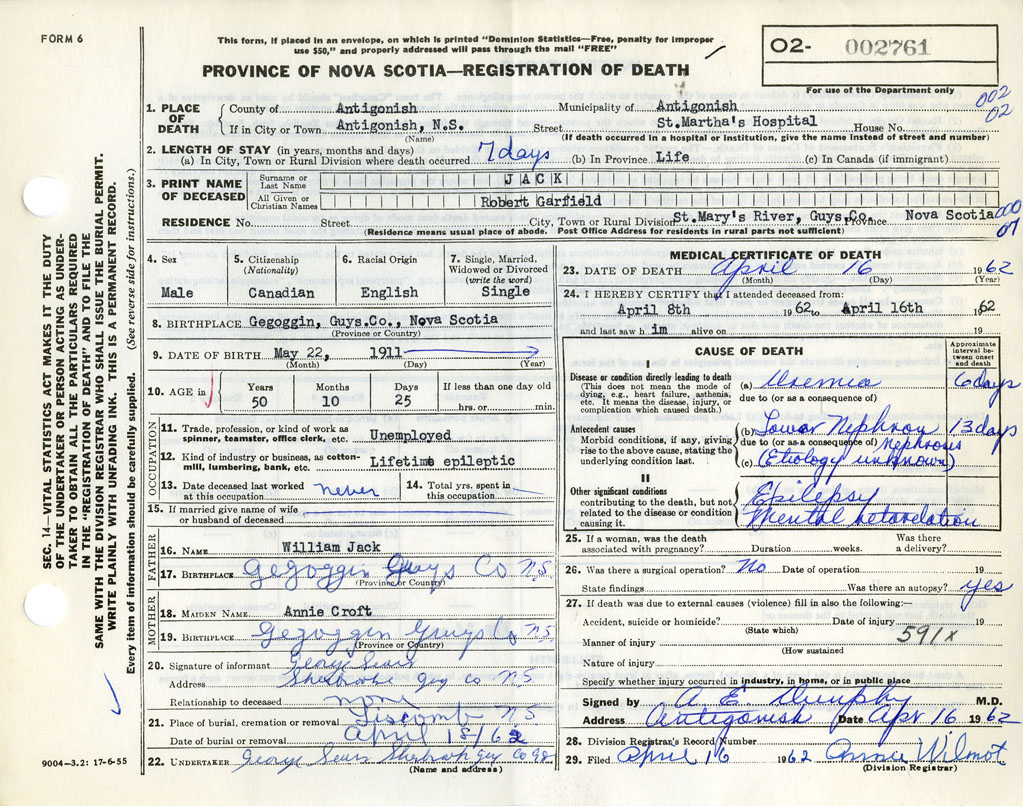 FORM 6
This form, if placed in an envelope, on which is printed "Dominion Statistics—Free, penalty for improper
use $50," and properly addressed will pass through the mail "FREE"
PROVINCE OF NOVA SCOTIA—REGISTRATION OF DEATH
O2- 002761
For use of the Department only
002
02
1. PLACE OF DEATH County of Antigonish Municipality of Antigonish
If in City or Town Antigonish, N.S. Street St.Martha's Hospital House No.
(Name) (If death occurred in a hospital or institution, give the name instead of street and number)
2. LENGTH OF STAY (in years, months and days)
(a) In City, Town or Rural Division where death occurred 7 days (b) In Province Life (c) In Canada (if immigrant)
3. PRINT NAME OF DECEASED Surname or Last Name JACK
All Given or Christian Names Robert Garfield
RESIDENCE No. Street City, Town or Rural Division St.Mary's River, Guys.Co. Province Nova Scotia
000
07
(Residence means usual place of abode. Post Office Address for residents in rural parts not sufficient)
4. Sex Male
5. Citizenship (Nationality) Canadian
6. Racial Origin English
7. Single, Married, Widowed or Divorced (write the word) Single
8. BIRTHPLACE Gegoggin, Guys.Co., Nova Scotia
(Province or Country)
9. DATE OF BIRTH May 22, 1911
(Month) (Day) (Year)
10. AGE in Years 50 Months 10 Days 25 If less than one day old hrs. or min.
OCCUPATION
11. Trade, profession, or kind of work as spinner, teamster, office clerk, etc. Unemployed
12. Kind of industry or business, as cotton-mill, lumbering, bank, etc. Lifetime epileptic
13. Date deceased last worked at this occupation never
14. Total yrs. spent in this occupation
15. If married give name of wife or husband of deceased
FATHER
16. NAME William Jack
17. BIRTHPLACE Gegoggin Guys Co N.S.
(Province or Country)
MOTHER
18. MAIDEN NAME Annie Croft
19. BIRTHPLACE Gegoggin Guys Co N.S
(Province or Country)
20. Signature of informant George Sears
Address Sherbrooke Guy Co N.S.
Relationship to deceased none
21. Place of burial, cremation or removal Liscomb N S
Date of burial or removal April 18/62
22. UNDERTAKER George Sears Sherbrook Guy Co
(Name and address)
MEDICAL CERTIFICATE OF DEATH
23. DATE OF DEATH April 16 1962
(Month) (Day) (Year)
24. I HEREBY CERTIFY that I attended deceased from:
April 8th 1962 to April 16th 1962
and last saw him alive on 19
CAUSE OF DEATH
Approximate interval between onset and death
I
Disease or condition directly leading to death
(This does not mean the mode of dying, e.g., heart failure, asthenia, etc. It means the disease, injury, or complication which caused death.)
(a) Uremia 6 days
due to (or as a consequence of)
Antecedent causes
Morbid conditions, if any, giving rise to the above cause, stating the underlying condition last.
(b) Lower Nephron 13 days
due to (or as a consequence of) nephrosis
(c) (Etiology unknown)
II
Other significant conditions
contributing to the death, but not related to the disease or condition causing it.
Epilepsy
Mental retardation
25. If a woman, was the death associated with pregnancy? Duration weeks. Was there a delivery?
26. Was there a surgical operation? No Date of operation 19
State findings Was there an autopsy? yes
27. If death was due to external causes (violence) fill in also the following:—
Accident, suicide or homicide? Date of injury 19
(State which)
591x
Manner of injury
(How sustained)
Nature of injury
Specify whether injury occurred in industry, in home, or in public place
Signed by A E Dunphy M.D.
Address Antigonish Date Apr 16 1962
28. Division Registrar's Record Number
29. Filed April 16 1962 Anna Wilmot
(Division Registrar)
SEC. 14—VITAL STATISTICS ACT MAKES IT THE DUTY
OF THE UNDERTAKER OR PERSON ACTING AS UNDER-
TAKER TO OBTAIN ALL THE PARTICULARS REQUIRED
IN THE "REGISTRATION OF DEATH" AND TO FILE THE
SAME WITH THE DIVISION REGISTRAR WHO SHALL ISSUE THE BURIAL PERMIT.
WRITE PLAINLY WITH UNFADING INK. THIS IS A PERMANENT RECORD.
Every item of information should be carefully supplied. (See reverse side for instructions.)
9004-3.2: 17-6-55